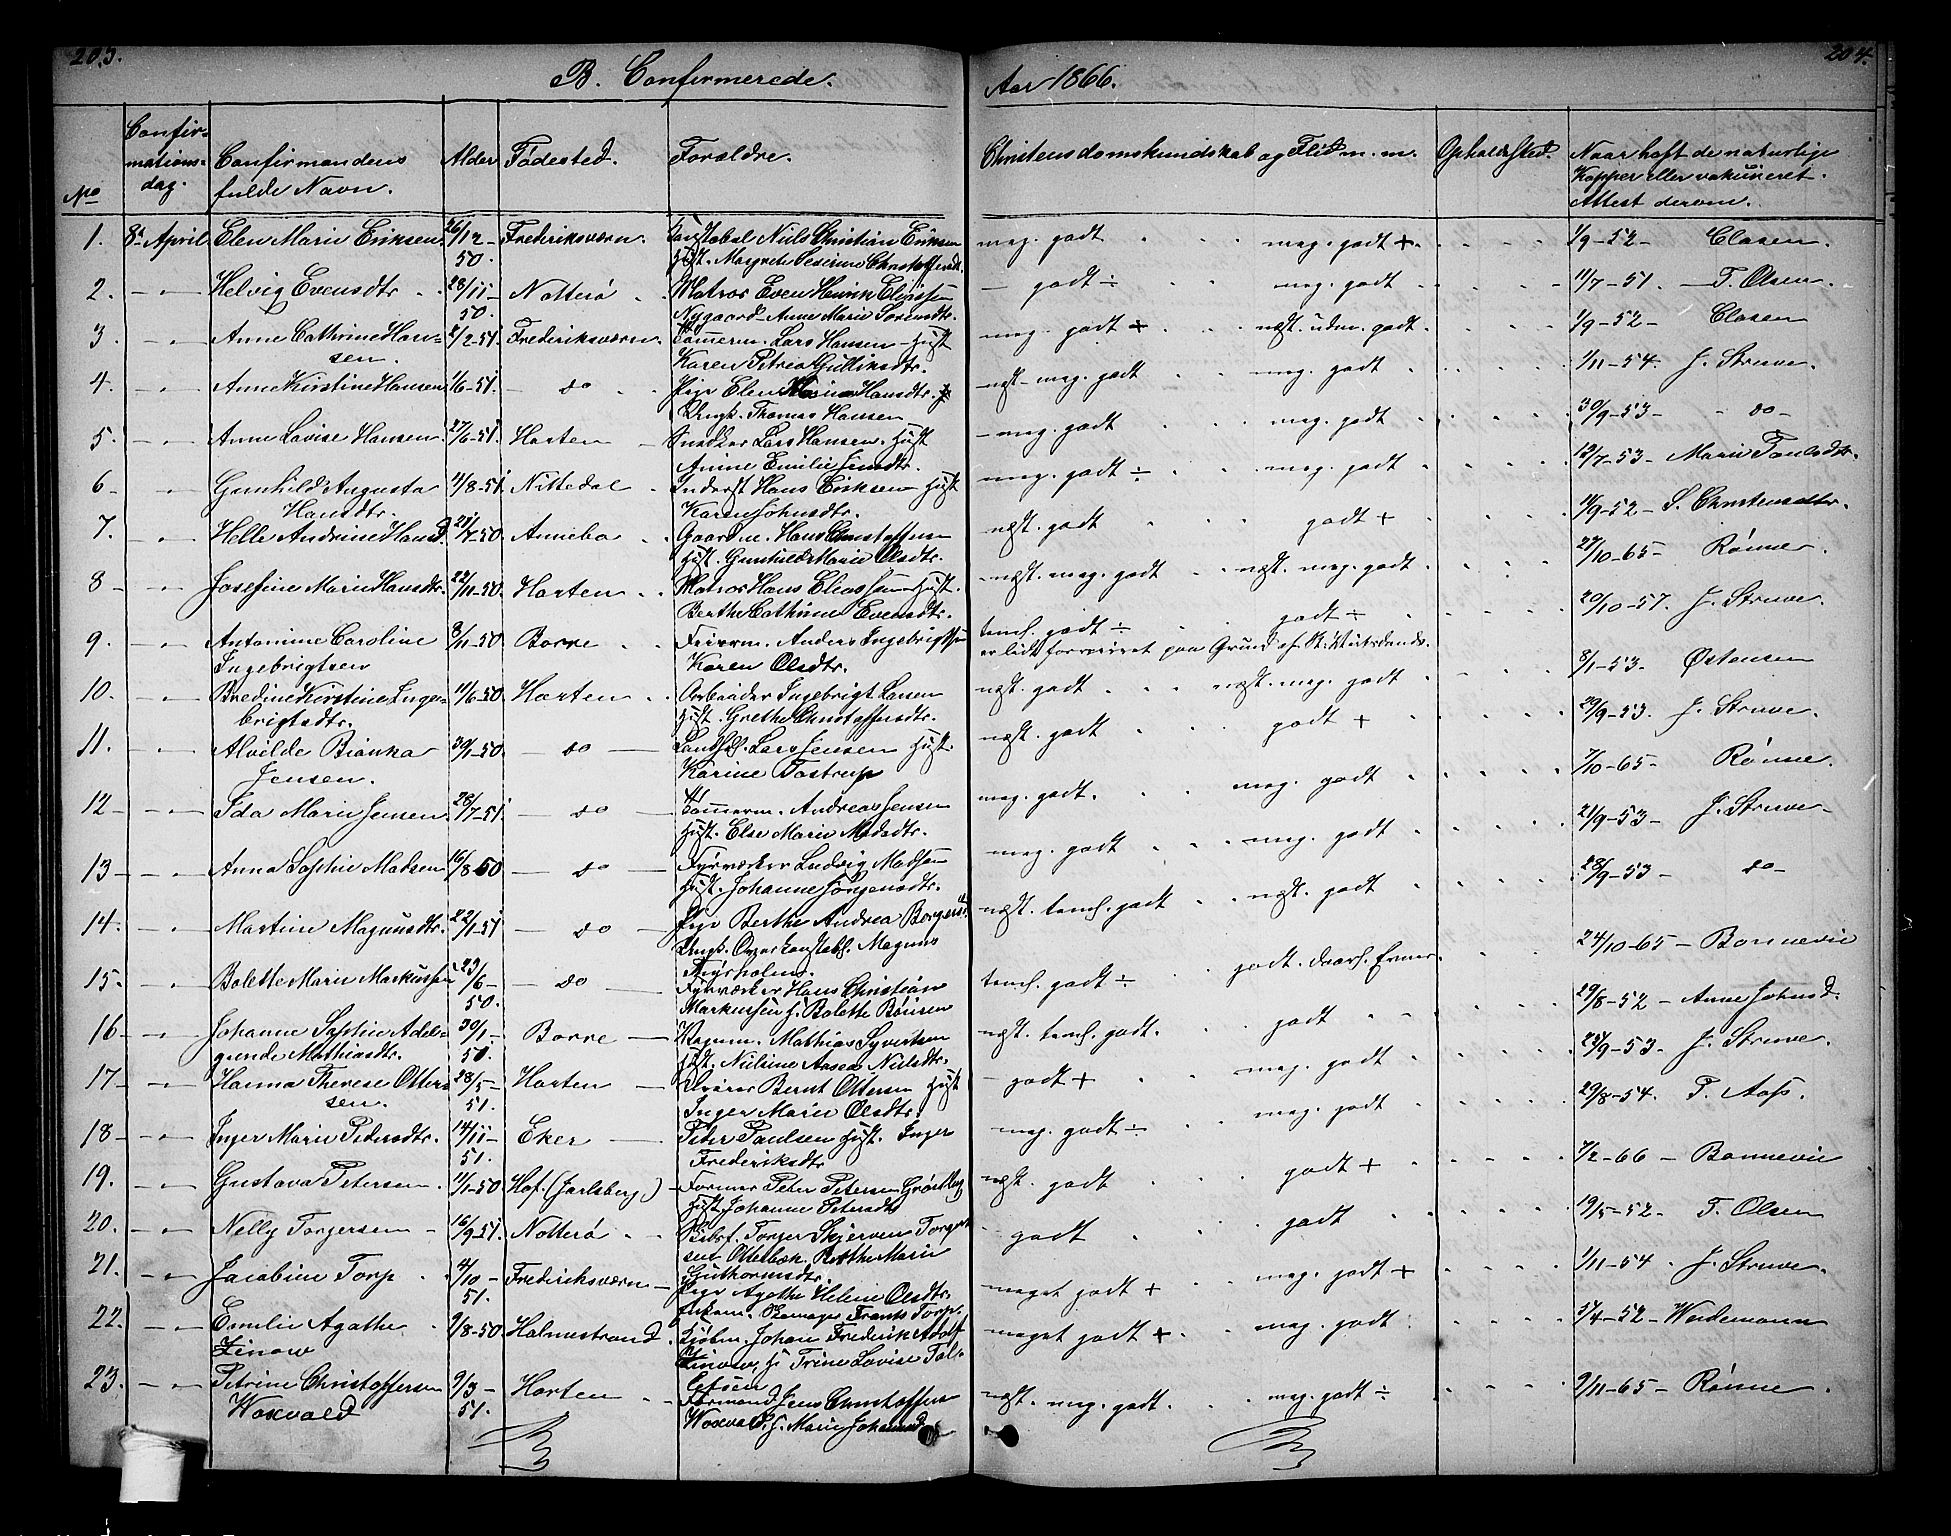 203.
204.
B. Confirmerede.
Aar 1866.
No
Confir-
mations-
dag.
Confirmandens
fulde Navn.
Alder
Fødested.
Forældre.
Christensdomskundskab og Flid m. m.
Opholdssted.
Naar haft de naturlige
Kopper eller vakcineret.
Attest derom.
1. 8de April Elen Marie Eriksen 26/12-50. Frederiksværn. Constabel Niels Christian Eriksen
Hust. Margrete Severine Christoffersdt.
meg. godt meg. godt + 1/9-52- Clasen.
2. Helvig Evensdtr. 28/11-50. Nøtterø Matros Even Henrik Eliassen
Nygaard - Anne Marie Sørensdtr.
godt ÷ meg. godt 11/7-51. F. Olsen.
3. Anne Cathrine Han-
sen. 2/2-51. Frederiksværn. Tømmerm. Lars Hansen - Hust
Karen Petrea Gulliksdtr.
meg. godt + næst. udm. godt. 1/9-52- Clasen
4. Anne Kirstine Hansen 1/6-51. do Pige Elen Marie Hansdtr. &
Ungk. Thomas Hansen
næst-meg. godt meg. godt 1/11-54. J. Struve.
5. Anne Lovise Hansen. 27/6-51. Horten Snedker Lars Hansen. Hust
Annne Emilie Jensdtr.
meg. godt meg. godt 30/9-53- do-
6- Gunhild Augusta
Hansdtr. 11/8-51. Nittedal Inderst Hans Eriksen Hust
Karen Johnsdtr.
meg. godt ÷ meg. godt 12/7-53- Marie Poulsdtr.
7. Helle Andrine Hansd. 21/7-50. Annebo Gaardm. Hans Christoffersen
Hust. Gunhild Marie Olsdtr.
næst. godt godt + 14/9-52- S. Christensdtr.
8 Josefine Marie Hansdtr. 22/11-50. Horten Matros Hans Eliassen Hust.
Berthe Cathrine Evensdtr.
næst. meg. godt næst. meg. godt 27/10-65- Rønne.
9. Antonime Caroline
Ingebrigtsen 3/11-50. Borre Anders Ingebrigtsen
Karen Olsdtr.
teml. godt ÷ godt ÷
er lidt forvirret paa Grund af
20/10-57. J. Struve.
10. Bredine Kirstine Inge-
brigtsdtr. 11/6-50 Horten Arbeider Ingebrigt Larsen
Hust. Grethe Christoffersdtr.
næst. godt næst. meg. godt 8/1-53. Østensen
11. Alvilde Bianka
Jensen. 30/1-50. do Lars Jensen Hust.
Karine Tostrup
næst. godt godt + 29/9-53. J. Struve.
12- Ida Marie Jensen 28/7-51. do Tømmerm. Andreas Jensen
Hust. Else Marie Madsdtr.
meg. godt. meg. godt 7/10-65- Rønne.
13- Anna Sophie Madsen 16/8-50 do Fyrværker Ludvig Madsen
Hust. Johanne Jørgensdtr.
meg. godt meg. godt 21/9-53- J. Struve-
14. Martine Magnusdtr. 22/1-51 do Pige Berthe Andrea Borgersdt.
Ungk. Overkonstabl. Magnus
næst. teml. godt næst. godt 28/9-53- do-
15. Bolette Marie Markussen 23/6-50. do Fyrværker Hans Christian
Markussen H. Bolette Bønsen
teml. godt ÷ godt. 24/10-65- Bonnevie
16- Johanne Sophie Adel-
gunde Mathiasdtr. 30/1-51. Borre Vognm. Mathias Syvertsen
Hust. Nilsine Aasea Nielsdtr.
næst. teml. godt. godt 29/8-52- Anne Johnsd.
17- Hanna Therese Otter-
sen. 28/5-51. Horten Bernt Ottersen Hust
Inger Marie Olsdtr.
godt + meg. godt 23/9-53. J. Struve.
18- Inger Marie Pedersdtr. 14/11-51. Eker Peter Paulsen Hust. Inger
Frederiksdtr
meg. godt ÷ meg. godt 29/8-54. P. Aass.
19. Gustava Petersen. 11/1-50 Hof. (Jarlsberg) Former Peter Petersen Grønberg
Hust Johanne Petersdtr
næst. godt godt + 7/2-66- Bonnevie
20. Nelly Torgersen 16/9-51 Nøtterø Torger Skjerven Torger-
sen Berthe Marie
Guthormsdtr.
godt godt 19/5-52- F. Olsen
21. Jacobine Torp 4/10-51. Frederiksværn Pige Agathe Helene Olsdtr.
Frants Torp.
meget godt + meg. godt + 1/11-54. J. Struve.
22. Emilie Agathe
Zinow 9/8-50. Holmestrand Kjøbm. Johan Frederik Adolf
Zinow, H. Trine Lovise Tol-
lefsen
meget godt + meg. godt 5/4-52- Weidemann
23. Petrine Christoffersen
Woxvald 9/3-51. Horten Formand Jens Christoffersen
Woxvald, H. Marie Johannesd.
næst. meg. godt. meg. godt ÷ 9/11-65- Rønne.